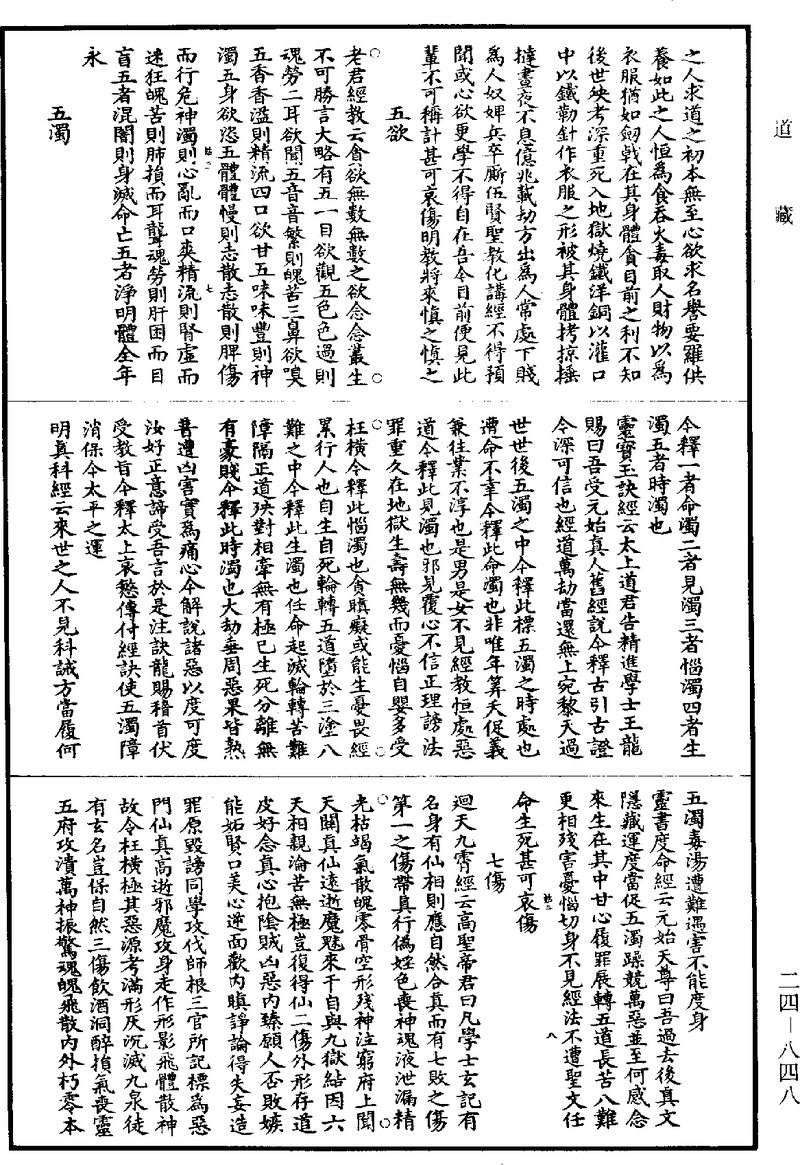 道藏
之人求道之初本無至心欲求名譽要羅供
養如此之人恒為食吞火毒取人財物以為
衣服猶如劒戟在其身體貪目前之利不知
後世殃考深重死入地獄燒鐵洋銅以灌口
中以鐵勒針作衣服之形被其身體拷掠捶
撻晝夜不息億兆載劫方出為人常處下賤
為人奴婢兵卒廝伍賢聖教化講經不得預
聞或心欲更學不得自在吾今目前便見此
輩不可稱計甚可哀傷明教將來慎之慎之
五欲
老君經教云貪欲無數無數之欲念念叢生
不可勝言大略有五一目欲觀五色色過則
魂勞二耳欲聞五音音繁則魄苦三鼻欲嗅
五香香溢則精流四口欲甘五味味豐則神
濁五身欲恣五體體慢則志散志散則脾傷
而行危神濁則心亂而口爽精流則腎虛而
迷狂魄苦則肺損而耳聾魂勞則肝困而目
盲五者混闇則身滅命亡五者淨明體全年
永
五濁
今釋一者命濁二者見濁三者惱濁四者生
濁五者時濁也
靈寶玉訣經云太上道君告精進學士王龍
賜曰吾受元始真人舊經說今釋古引古證
今深可信也經道萬劫當還無上宛黎天過
世世後五濁之中今釋此標五濁之時處也
遭命不幸今釋此命濁也非唯年筭夭促義
兼往業不淳也是男是女不見經教恒處惡
道今釋此見濁也邪見覆心不信正理謗法
罪重久在地獄生壽無幾而憂惱自嬰多受
枉橫今釋此惱濁也貪瞋癡或能生憂畏經
累行人也自生自死輪轉五道墮於三塗八
難之中今釋此生濁也任命起滅輪轉苦難
障隔正道殃對相牽無有極已生死分離無
有豪賤今釋此時濁也大劫垂周惡果皆熟
普遭凶害實為痛心今解說諸惡以度可度
汝好正意諦受吾言於是注訣龍賜稽首伏
受教旨今釋太上哀愍傳付經訣使五濁障
消保今太平之運
明真科經云來世之人不見科誡方當履何
五濁毒湯遭難遇害不能度身
靈書度命經云元始天尊曰吾過去後真文
隱藏運度當促五濁躁競萬惡並至何感念
來生在其中甘心履罪展轉五道長苦八難
更相殘害憂惱切身不見經法不遭聖文任
命生死甚可哀傷
七傷
迴天九霄經云高聖帝君曰凡學士玄記有
名身有仙相則應自然合真而有七敗之傷
第一之傷帶真行偽婬色喪神魂液泄漏精
光枯竭氣散魄零骨空形殘神注窮府上聞
天關真仙遠逝魔魅來干自與九獄結因六
天相親淪苦無極豈復得仙二傷外形存道
皮好念真心抱陰賊凶惡內臻願人否敗嫉
能妬賢口美心逆面歡內瞋諍論得失妄造
罪原毀謗同學攻伐師根三官所記標為惡
門仙真高逝邪魔攻身走作形影飛體散神
故令枉橫極其惡源考滿形灰沉滅九泉徒
有玄名豈保自然三傷飲酒洞醉損氣喪靈
五府攻潰萬神振驚魂魄飛散內外朽零本
二四—八四八